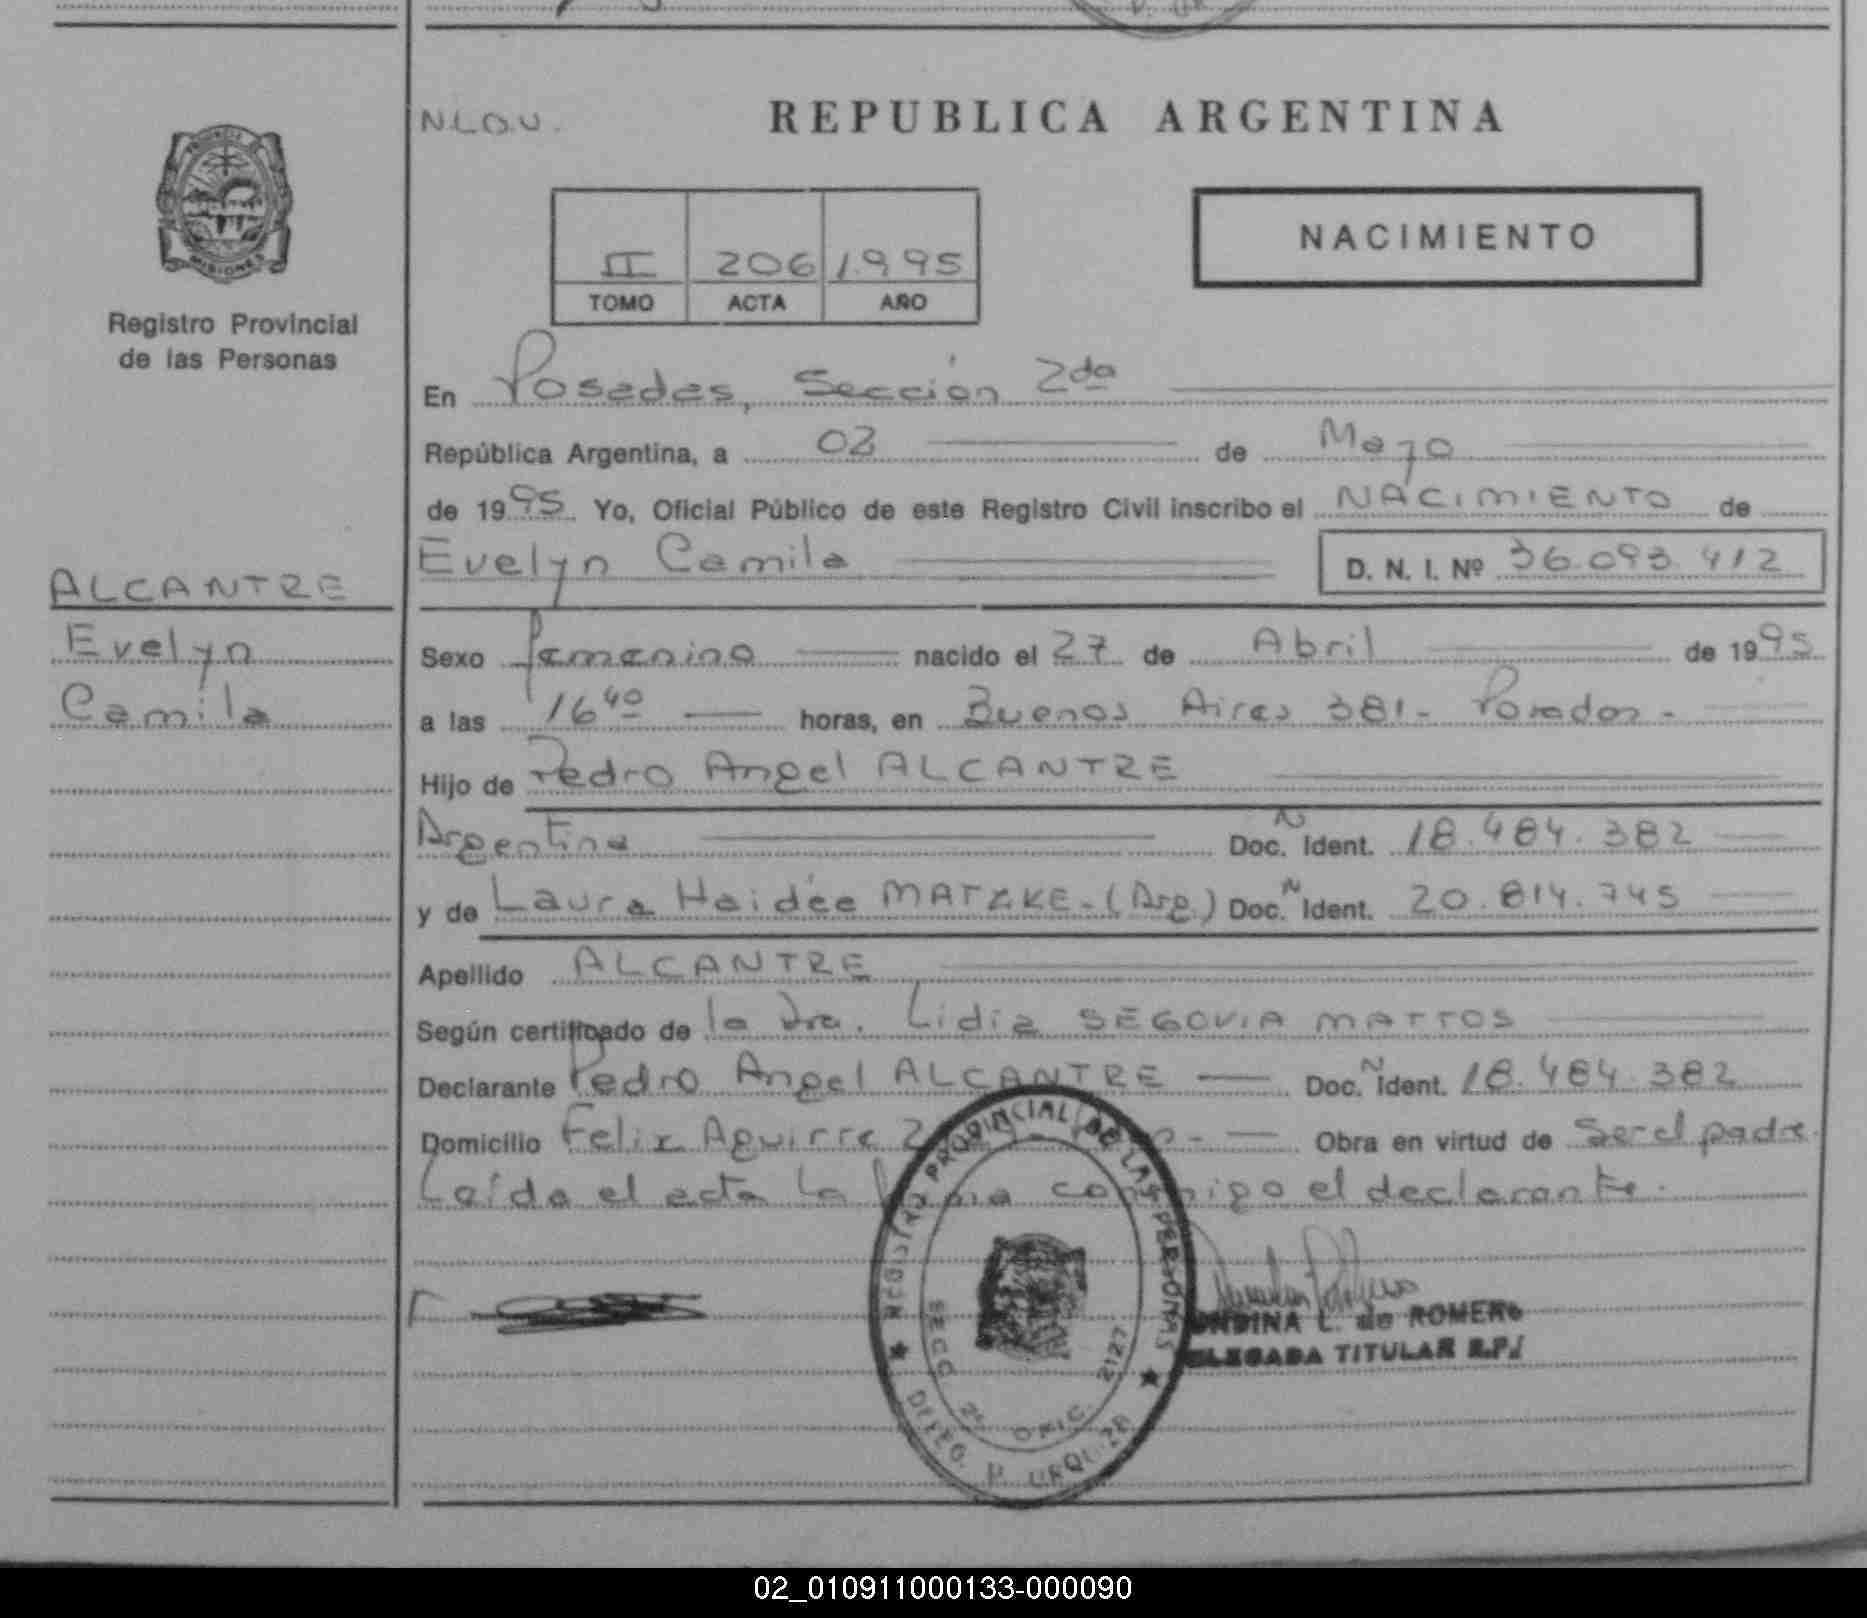 N.L.O.U.
REPUBLICA ARGENTINA
PROVINCIA
MISIONES
Registro Provincial
de las Personas
II 206 1.995
TOMO ACTA AÑO
NACIMIENTO
En Posadas, Sección 2da
República Argentina, a 03 de Mayo
de 1995 Yo, Oficial Público de este Registro Civil inscribo el NACIMIENTO de
Evelyn Camila D. N. I. Nº 36.093.412
ALCANTRE
Evelyn
Camila
Sexo femenino nacido el 27 de Abril de 1995
a las 16 40 horas, en Buenos Aires 381 - Posadas -
Hijo de Pedro Angel ALCANTRE
Argentina Doc. N Ident. 18.484.382
y de Laura Haidée MATZKE - (Arg.) Doc. N Ident. 20.814.745
Apellido ALCANTRE
Según certificado de la Dra. Lidia SEGOVIA MATTOS
Declarante Pedro Angel ALCANTRE Doc. N Ident. 18.484.382
Domicilio Felix Aguirre Obra en virtud de Ser el padre.
Leída el acta la firma conmigo el declarante.
REGISTRO PROVINCIAL DE LAS PERSONAS
SECC 2ª 2127
DELEG. P. URQUIZA
L. de ROMERO
DELEGADA TITULAR R.P.
02_010911000133-000090